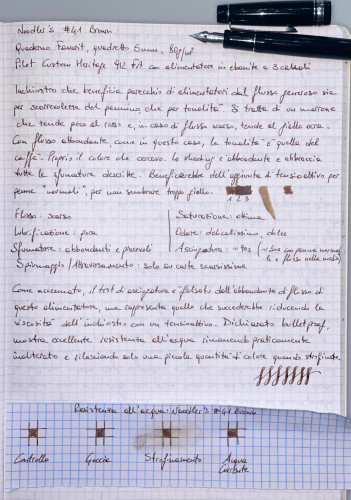 Noodler's #41 Brown
Quaderno Favorit, quadretto 5mm, 80g/m²
Pilot Custom Heritage 912 FA con alimentatore in ebanite a 3 canali
Inchiostro che beneficia parecchio di alimentatori dal flusso generoso sia
per scorrevolezza del pennino che per tonalità. Si tratta di un marrone
che tende poco al rosso e, in caso di flusso scarso, tende al giallo ocra.
Con flusso abbondante, come in questo caso, la tonalità è quella del
caffè. Proprio il colore che cercavo. Lo shading è abbondante e abbraccia
tutte le sfumature descritte. Beneficerebbe dell'aggiunta di tensioattivo per
penne "normali", per non sembrare troppo giallo.
1 2 3
Flusso: scarso
Saturazione: ottima
Lubrificazione: poca
Odore: delicatissimo, dolce
Sfumature: abbondanti e piacevoli
Asciugatura: ~40s (~20s con penne normali, e flussi nella media)
Spiumaggio/Attraversamento: solo su carte scarsissime
Come accennato, il test di asciugatura è falsato dall'abbondanza di flusso di
questo alimentatore, ma rappresenta quello che succederebbe riducendo la
viscosità dell'inchiostro con un tensioattivo. Dichiarato bulletproof,
mostra eccellente resistenza all'acqua rimanendo praticamente
inalterato e rilasciando solo una piccola quantità di colore quando strofinato.
Resistenza all'acqua: Noodler's #41 Brown
Controllo
Goccia
Strofinamento
Acqua corrente